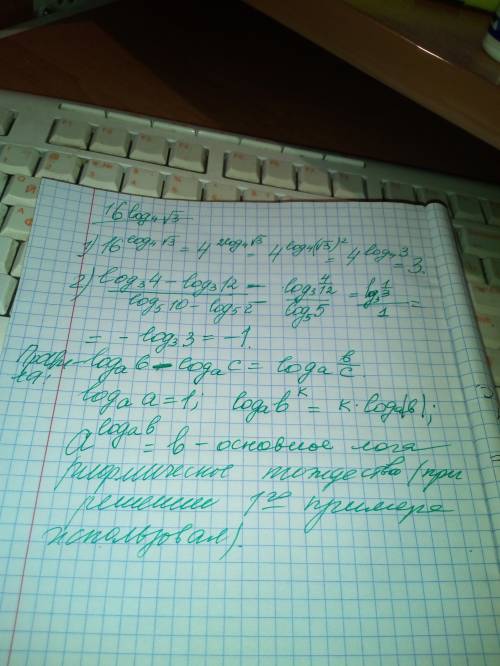 16^{log₄√3}
1) 16^{log₄√3} = 4^{2log₄√3} = 4^{log₄(√3)²} = 4^{log₄3} = 3.
2) (log₃4 - log₃12)/(log₅10 - log₅2) = (log₃ 4/12)/(log₅5) = (log₃ 1/3)/1 =
= - log₃3 = -1.
logₐb - logₐc = logₐ b/c.
logₐa = 1; logₐb^k = k·logₐ(b);
a^{logₐb} = b - основное лога-
рифмическое тождество (при
решении 1го примера
использовал).